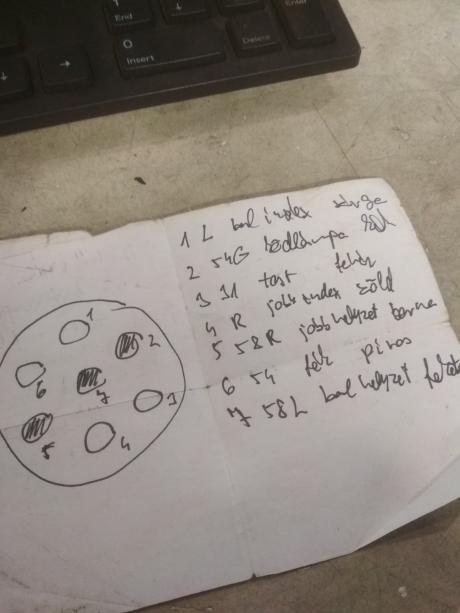 1
End
0
Insert
Delete
Enter
1 L bal index sárga
2 54G ködlámpa kék
3 31 test fehér
4 R jobb index zöld
5 58R jobb helyzet barna
6 54 fék piros
7 58L bal helyzet fekete
1
2
6
7
3
5
4